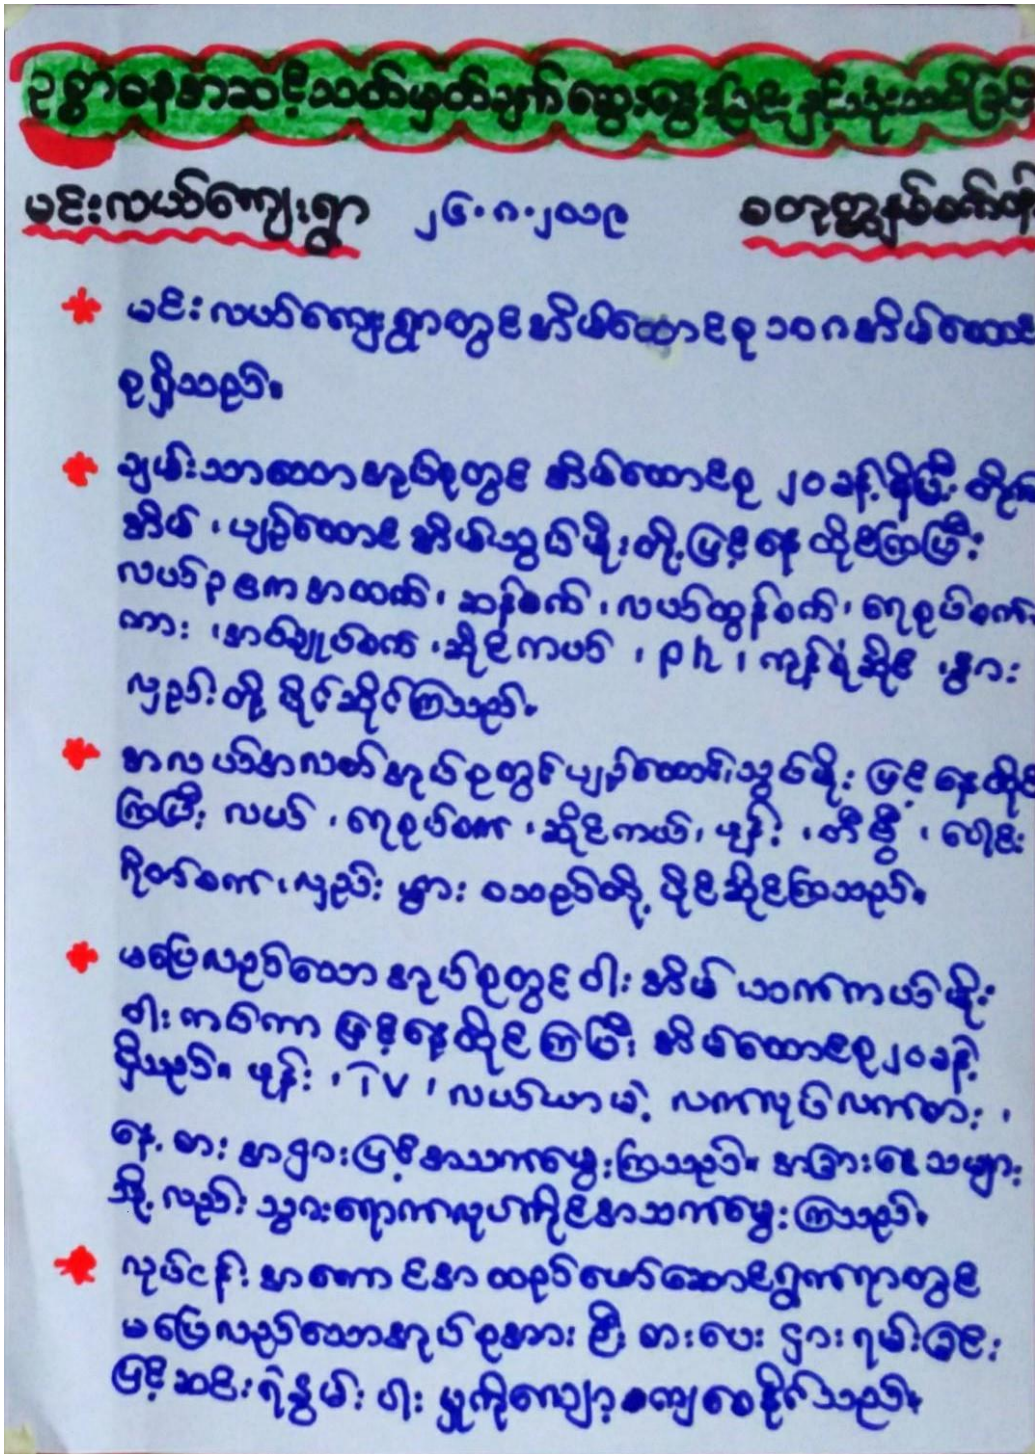 ဥစ္စာဓနအဆင့်သတ်မှတ်ချက်ဆွေးနွေးခြင်းနှင့်သုံးသပ်ခြင်း
မင်းလယ်ကျေးရွာ ၂၆.၈.၂၀၁၉
* မင်းလယ်ကျေးရွာတွင်အိမ်ထောင်စု ၁၀၈အိမ်ထောင်
စုရှိသည်။
* ချမ်းသာသောအုပ်စုတွင် အိမ်ထောင်စု ၂၀ခန့်ရှိပြီး တိုက်
အိမ်၊ ပျဉ်ထောင်အိမ်သွပ်မိုးတို့ဖြင့်နေထိုင်ကြပြီး
လယ်၃ဧကအထက်၊ ဆန်စက်၊ လယ်ထွန်စက်၊ ရေစုပ်စက်
ကား၊ အပ်ချုပ်စက်၊ ဆိုင်ကယ်၊ ph၊ ကုန်စုံဆိုင်၊ နွား
လှည်းတို့ ပိုင်ဆိုင်ကြသည်။
* အလယ်အလတ်အုပ်စုတွင်ပျဉ်ထောင်၊သွပ်မိုး ဖြင့်နေထိုင်
ကြပြီး လယ်၊ ရေစုပ်စက်၊ ဆိုင်ကယ်၊ ဖုန်း၊ တီဗွီ၊ ပေါင်း
ရိုတ်စက်၊ လှည်း နွား စသည်တို့ ပိုင်ဆိုင်ကြသည်။
* မပြေလည်သောအုပ်စုတွင်ဝါးအိမ် သက်ကယ်မိုး
ဝါးကပ်ကာ ဖြင့်နေထိုင်ကြပြီး အိမ်ထောင်စု၂၀ခန့်
ရှိသည်။ ဖုန်း၊ TV၊ လယ်ယာမဲ့ လက်လုပ်လက်စား၊
နေ့စားအငှားဖြင့်အသက်မွေးကြသည်။ အခြားဒေသများ
သို့လည်း သွားရောက်လုပ်ကိုင်အသက်မွေးကြသည်။
* လုပ်ငန်းအကောင်အထည်ဖော်ဆောင်ရွက်ရာတွင်
မပြေလည်သောအုပ်စုအား ဦးစားပေး ငှားရမ်းခြင်း
ဖြင့်ဆင်းရဲနွမ်းပါးမှုကိုလျော့စေနိုင်သည်။